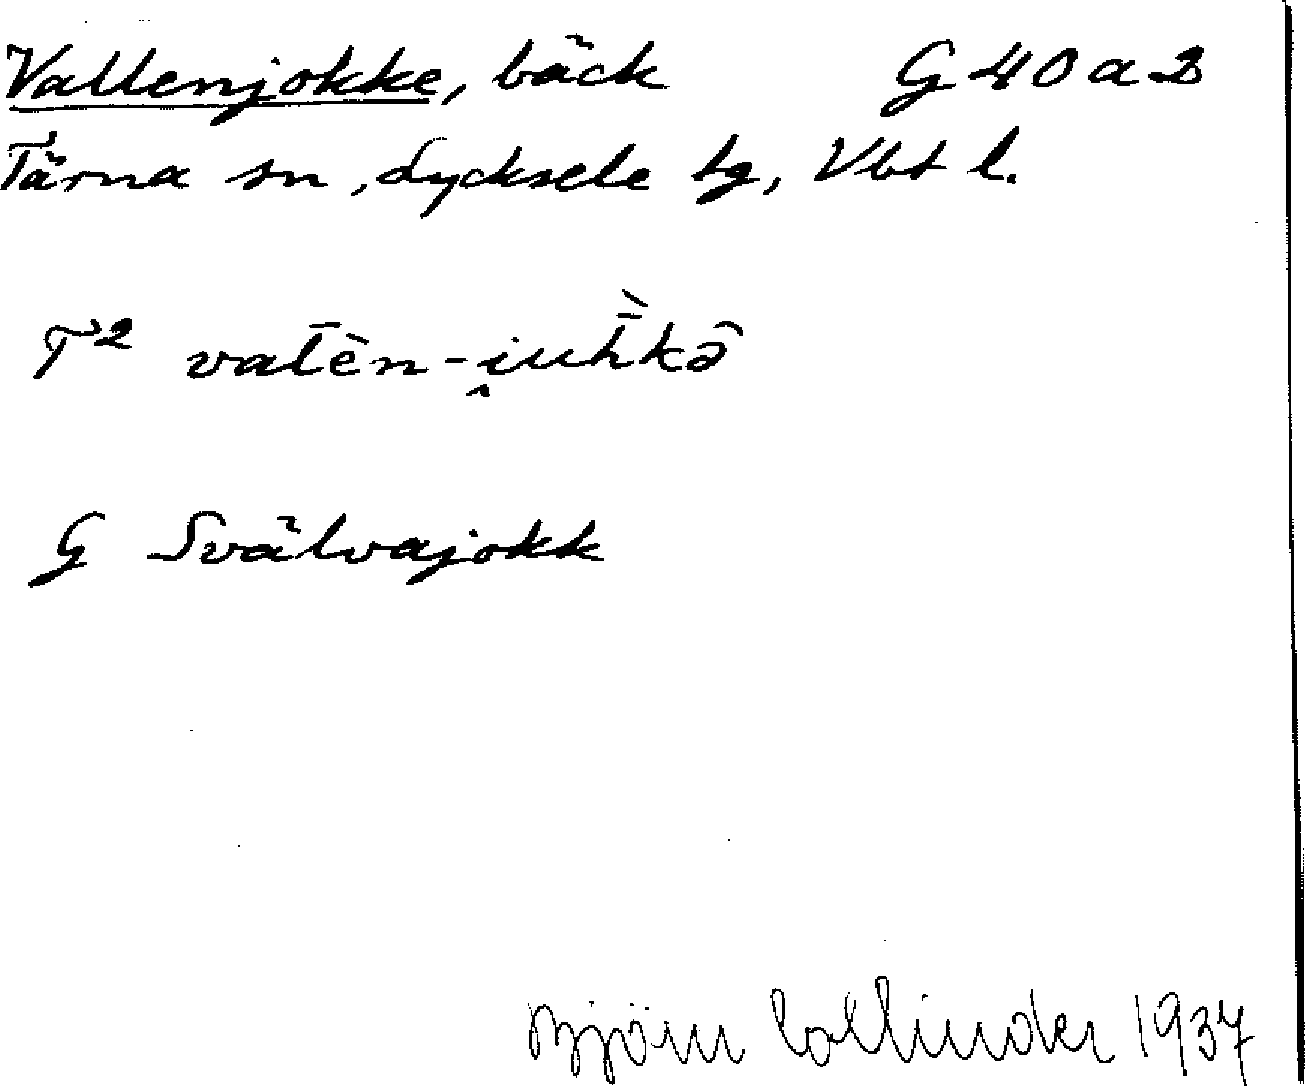 Vallenjokke, bäck G 40 a 2
Tärna sn, Lycksele lg, Vbt l.
T² val̄èn-i̯uh̄̀kə̑
G Svälvajokk
Björn Collinder 1937